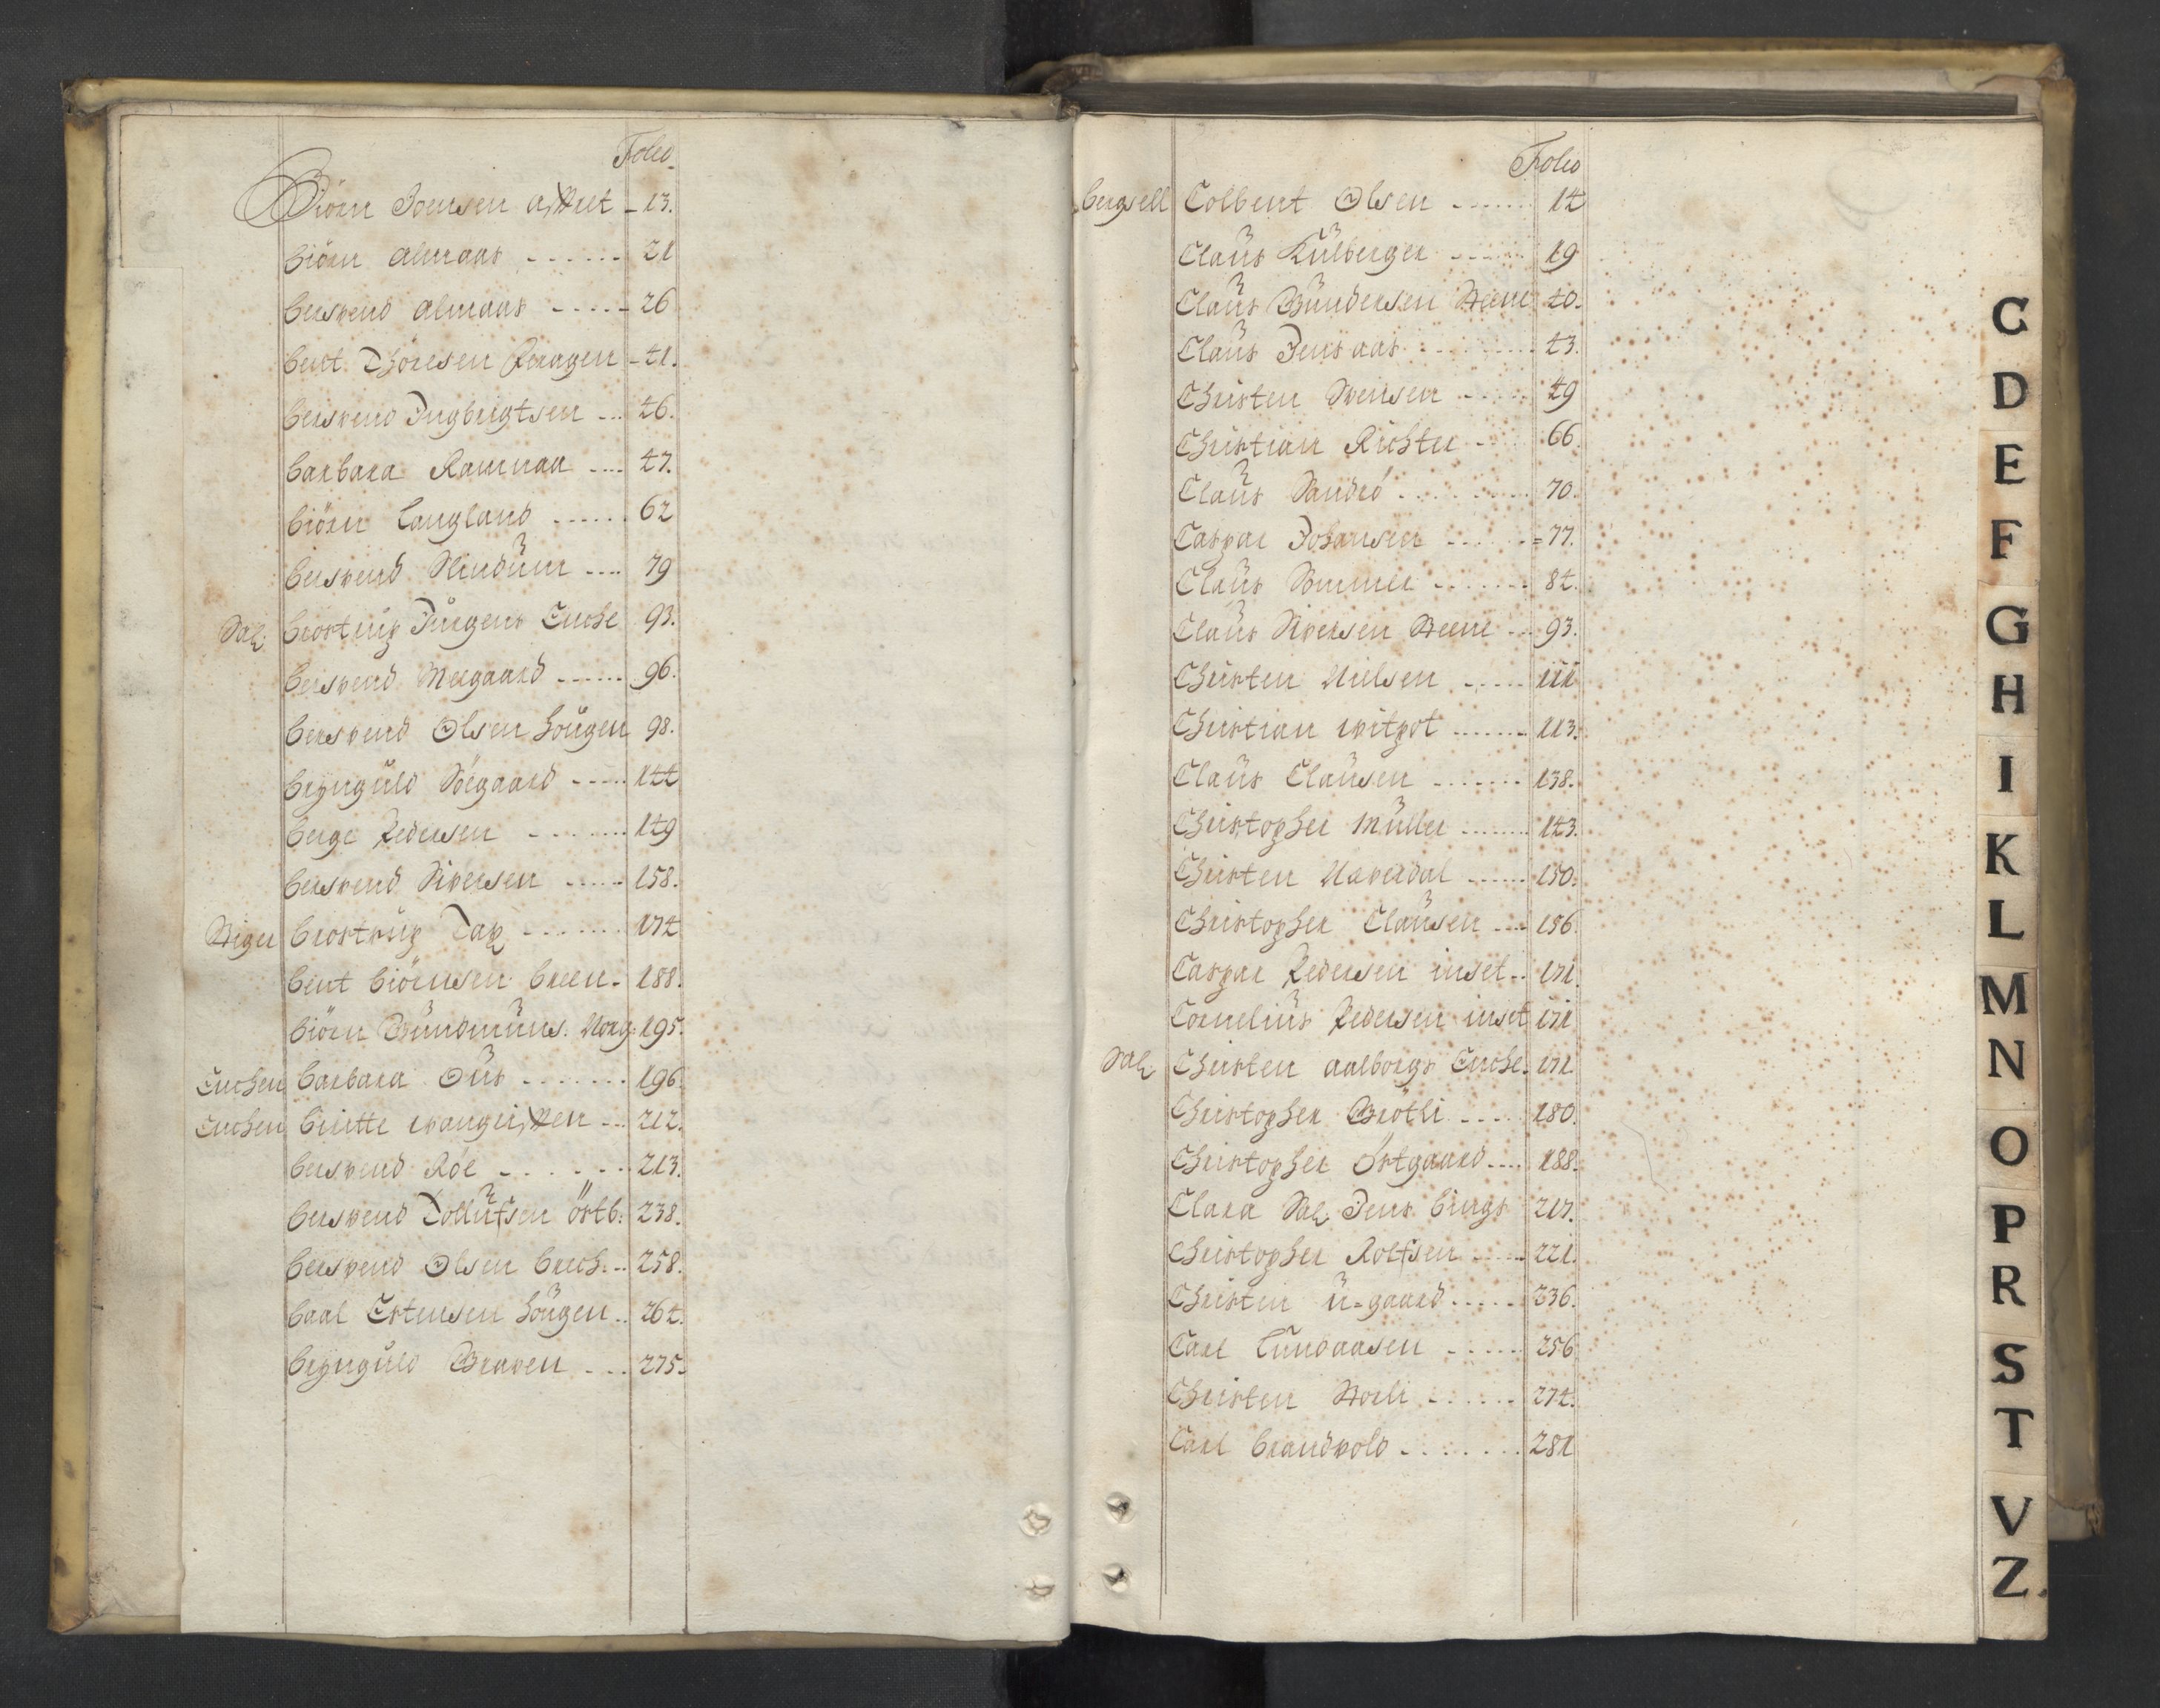 Folio
Biörn Joensen
13.
biörn almaas ...... 21
berswend almaas ..... 26
bent Thöresen Kragen 41.
berswend Ingbrigtsen ... 46.
barbara Ramnaa .... 47.
biörn Langland ...... 62
berswend Slindüm .... 79
Sal. brostrüp Jürgens Encke 93.
berswend Meegaard ...... 96.
berswend Olsen Hougen 98.
brÿnguld Söegaard ..... 144
berge Pedersen ....... 149
berswend Siversen ..... 158.
Stiger brostrup Dax ....... 174
bent biörnsen breen. 188.
biörn Gundmunds. Norg: 195.
Enchen barbara Ous ....... 196
Enchen biritte 212.
berswend Röe ...... 213.
berswend Tollüfsen östb: 238.
berswend Olsen brech. .. 258.
baal Estensen Hougen .. 264.
brÿnguld Graven .... 275.
Folio
bergsell Colbent Olsen ...... 14
Claüs Külberger ...... 19
Claüs Gundersen Steene 40.
Claüs Jensaas ......... 43.
Christen Svensen ...... 49
Christian Richter .... 66.
Claüs Sandrö ......... 70.
Caspar Johansen ...... 77.
Claüs Sommer ....... 84.
Claüs Siversen Steene ... 93.
Christen Nielsen ..... 111
Christian witpot ....... 113.
Claüs Claüsen ....... 138.
Christopher Müller ....... 143.
Christen Naverdal ...... 150.
Christopher Claüsen .... 156.
Caspar Pedersen inset .. 171.
Cornelius Pedersen inset 171
Sal. Christen aalborgs Encke. 171
Christopher Grötli ..... 180.
Christopher Östgaard .... 188.
Clara Sal. Jens bings 217.
Christopher Rolfsen ...... 221.
Christen ü=gaard ..... 236.
Carl Tünaasen ...... 256
Christen Stoeli ...... 274.
Carl brandvold ....... 281
C
D
E
F
G
H
I
K
L
M
N
O
P
R
S
T
V
Z.